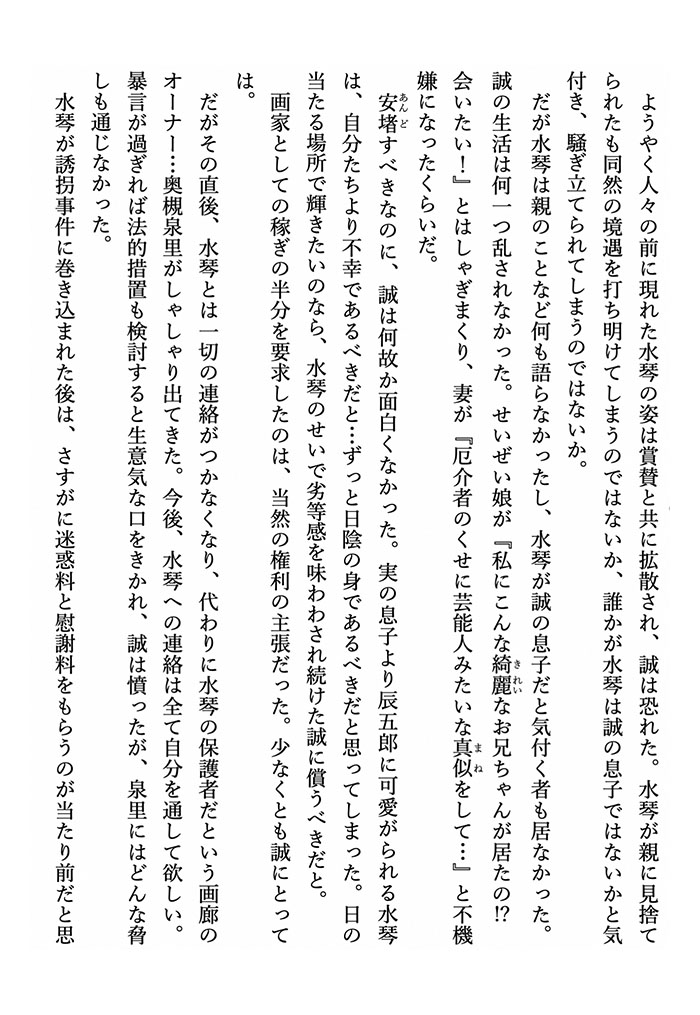 ようやく人々の前に現れた水琴の姿は賞賛と共に拡散され、誠は恐れた。水琴が親に見捨て
られたも同然の境遇を打ち明けてしまうのではないか、誰かが水琴は誠の息子ではないかと気
付き、騒ぎ立てられてしまうのではないか。
だが水琴は親のことなど何も語らなかったし、水琴が誠の息子だと気付く者も居なかった。
誠の生活は何一つ乱されなかった。せいぜい娘が『私にこんな綺麗なお兄ちゃんが居たの!?
会いたい！』とはしゃぎまくり、妻が『厄介者のくせに芸能人みたいな真似をして…』と不機
嫌になったくらいだ。
安堵すべきなのに、誠は何故か面白くなかった。実の息子より辰五郎に可愛がられる水琴
は、自分たちより不幸であるべきだと…ずっと日陰の身であるべきだと思ってしまった。日の
当たる場所で輝きたいのなら、水琴のせいで劣等感を味わわされ続けた誠に償うべきだと。
画家としての稼ぎの半分を要求したのは、当然の権利の主張だった。少なくとも誠にとって
は。
だがその直後、水琴とは一切の連絡がつかなくなり、代わりに水琴の保護者だという画廊の
オーナー…奥槻泉里がしゃしゃり出てきた。今後、水琴への連絡は全て自分を通して欲しい。
暴言が過ぎれば法的措置も検討すると生意気な口をきかれ、誠は憤ったが、泉里にはどんな脅
しも通じなかった。
水琴が誘拐事件に巻き込まれた後は、さすがに迷惑料と慰謝料をもらうのが当たり前だと思